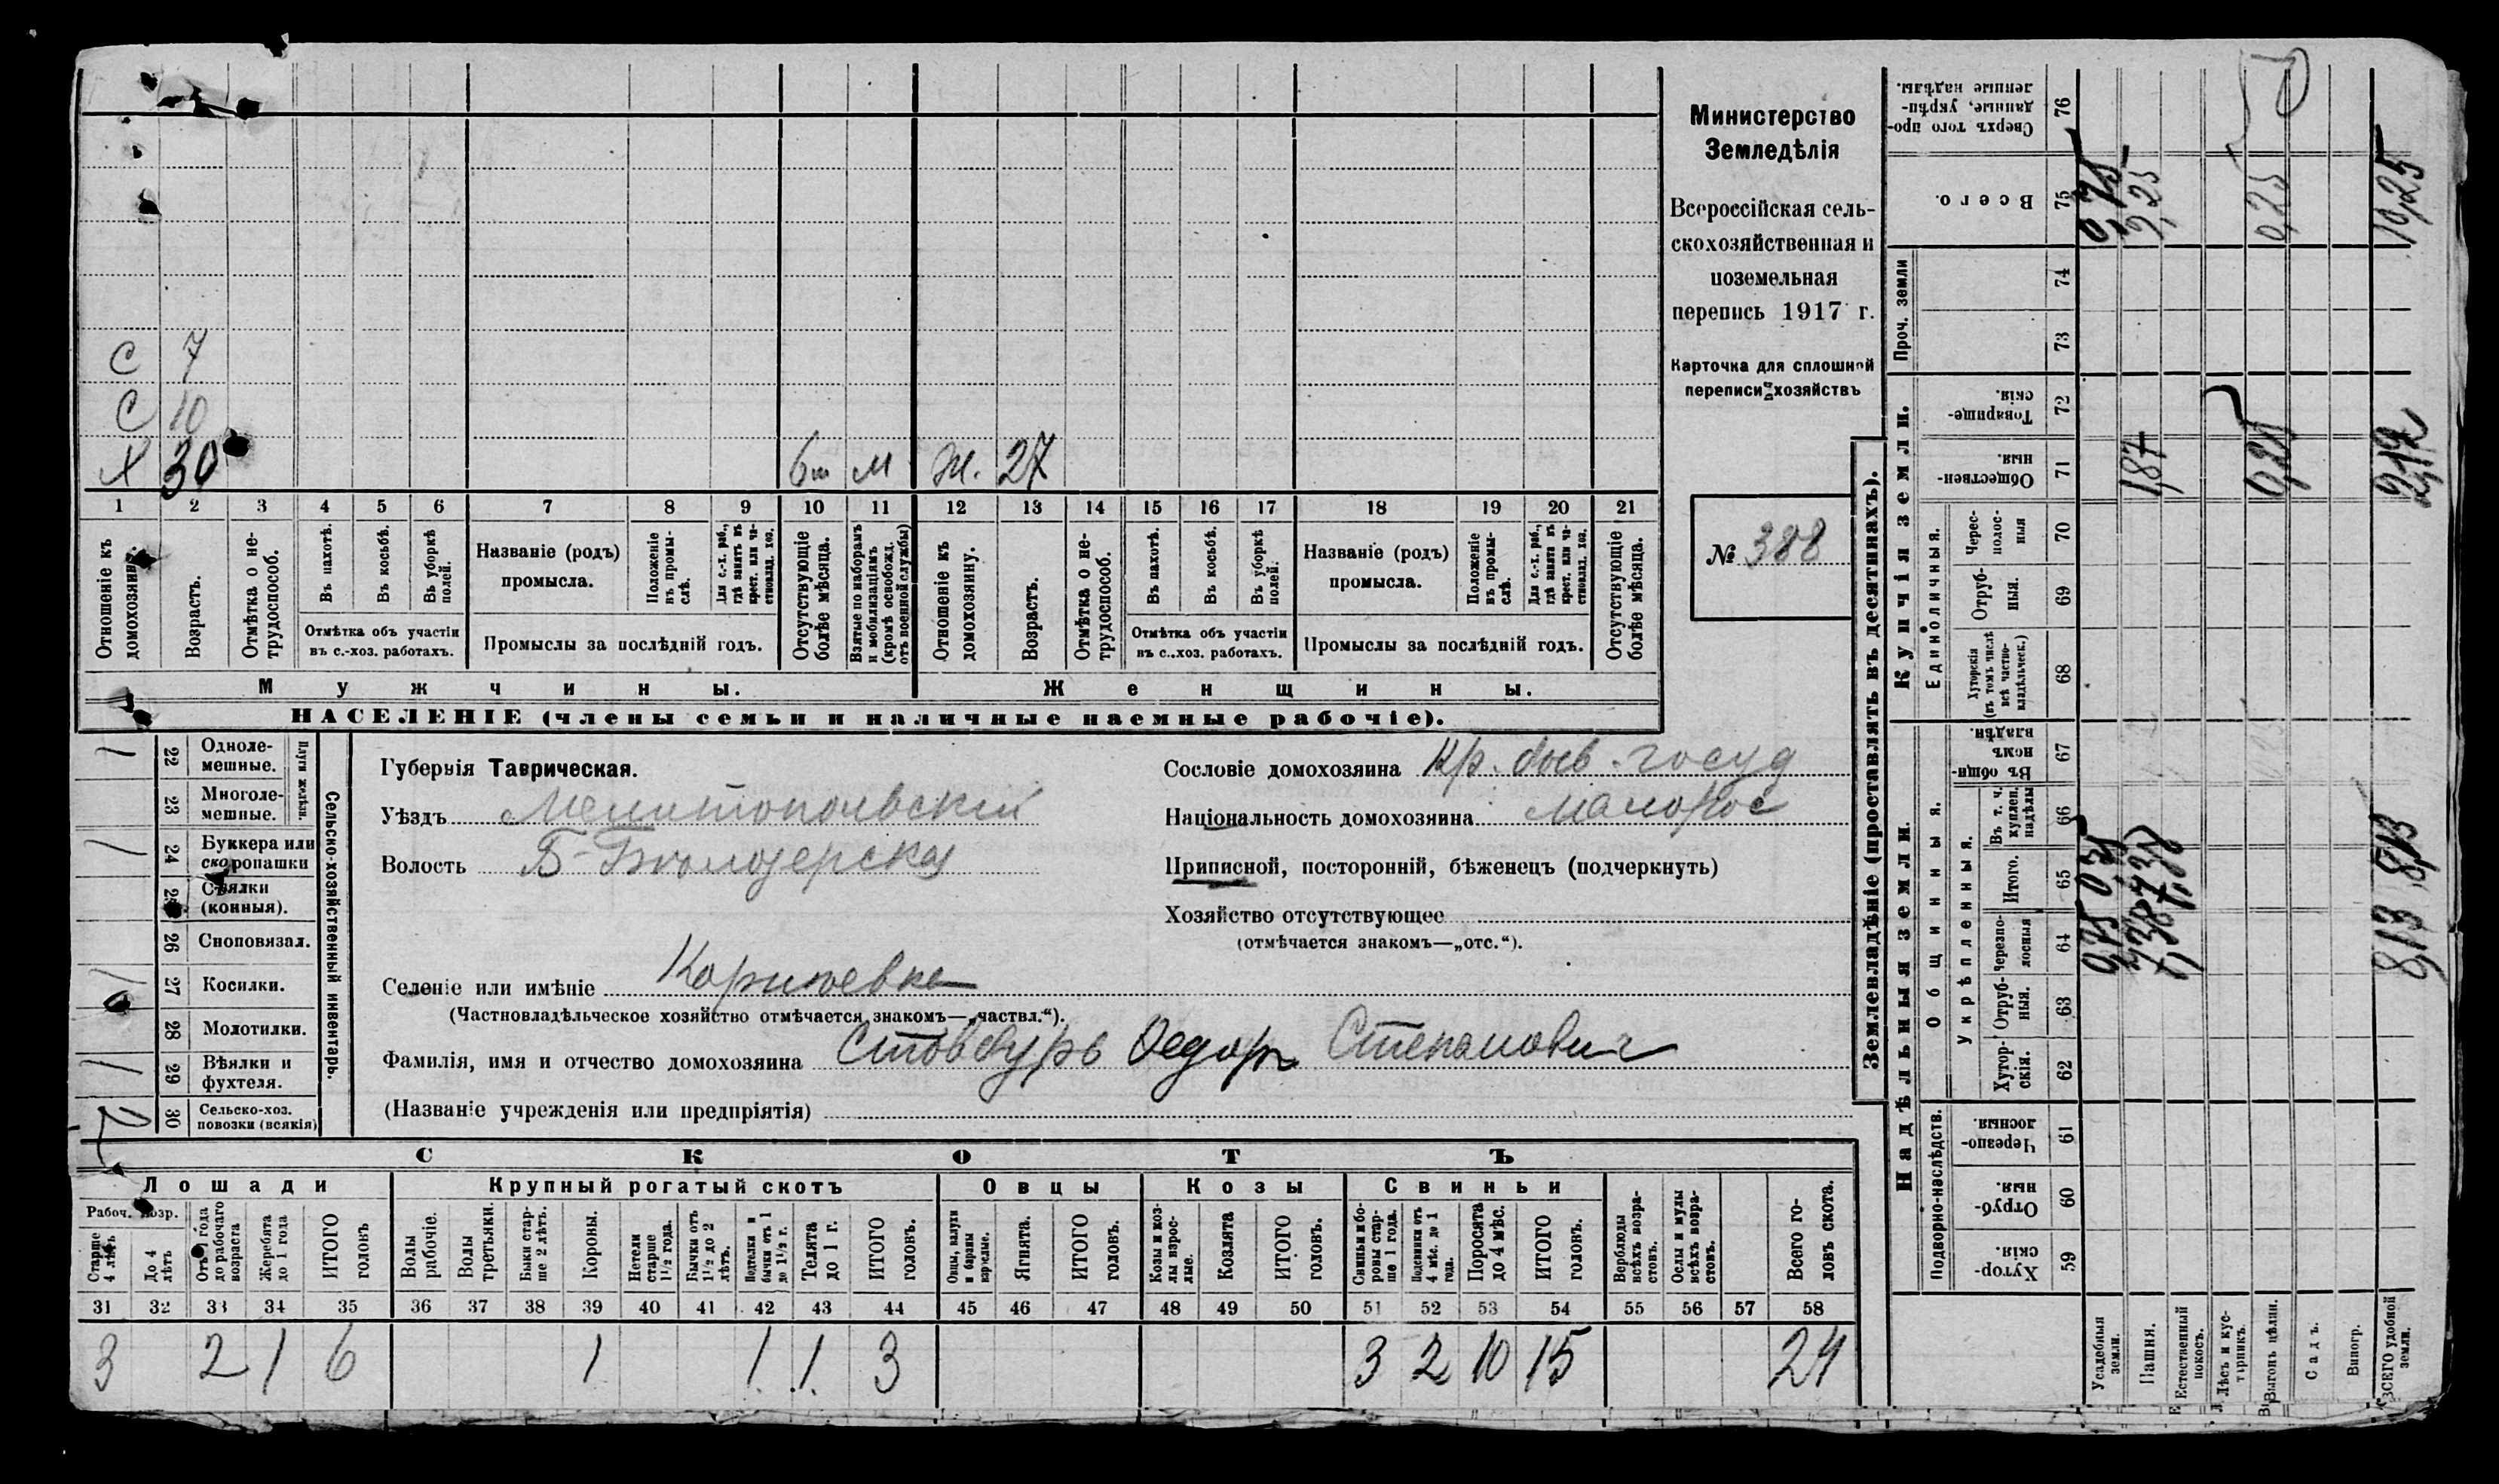 Министерство
Земледѣлія
Всероссійская сель-
скохозяйственная и
поземельная
перепись 1917 г.
Карточка для сплошной
переписи хозяйствъ
№ 388
С 7
С 10
Х 30 м ж. 27
1 2 3 4 5 6 7 8 9 10 11 12 13 14 15 16 17 18 19 20 21
Отношеніе къ домохозяину.
Возрастъ.
Отмѣтка о не-трудоспособ.
Въ пахотѣ.
Въ косьбѣ.
Въ уборкѣ полей.
Отмѣтка объ участіи
въ с.-хоз. работахъ.
Названіе (родъ)
промысла.
Положеніе въ промы-слѣ.
Для с.-х. раб., гдѣ занятъ въ крест. или ча-стновлад. хоз.
Промыслы за послѣдній годъ.
Отсутствующіе болѣе мѣсяца.
Взятые по наборамъ и мобилизаціямъ (кромѣ освобожд. отъ военной службы)
Отношеніе къ домохозяину.
Возрастъ.
Отмѣтка о не-трудоспособ.
Въ пахотѣ.
Въ косьбѣ.
Въ уборкѣ полей.
Отмѣтка объ участіи
въ с.-хоз. работахъ.
Названіе (родъ)
промысла.
Положеніе въ промы-слѣ.
Для с.-х. раб., гдѣ занята въ крест. или ча-стновлад. хоз.
Промыслы за послѣдній годъ.
Отсутствующіе болѣе мѣсяца.
Мужчины. Женщины.
НАСЕЛЕНІЕ (члены семьи и наличные наемные рабочіе).
Сельско-хозяйственный инвентарь.
Плуги желѣзн.
1 22 Одноле-мешные.
23 Многоле-мешные.
1 24 Буккера или скоропашки
25 Сѣялки (конныя).
26 Сноповязал.
27 Косилки.
28 Молотилки.
1 29 Вѣялки и фухтеля.
30 Сельско-хоз. повозки (всякія)
Губернія Таврическая.
Уѣздъ Мелитопольскій
Волость Б-Бѣлозерска
Сословіе домохозяина Кр. быв. госуд
Національность домохозяина малорос
Приписной, посторонній, бѣженецъ (подчеркнуть)
Хозяйство отсутствующее
(отмѣчается знакомъ—„отс.“).
Селеніе или имѣніе
(Частновладѣльческое хозяйство отмѣчается знакомъ—„частвл.“).
Фамилія, имя и отчество домохозяина Стовбуръ Федоръ Степанович
(Названіе учрежденія или предпріятія)
СКОТЪ
Лошади Крупный рогатый скотъ Овцы Козы Свиньи
Рабоч. возр.
Старше 4 лѣтъ
До 4 лѣтъ
Отъ 1 года до рабочаго возраста
Жеребята до 1 года
ИТОГО головъ
Волы рабочіе.
Волы третьяки.
Быки стар-ше 2 лѣтъ.
Коровы.
Нетели старше 1 1/2 года.
Бычки отъ 1 1/2 до 2 лѣтъ.
Подтелки и бычки отъ 1 до 1 1/2 г.
Телята до 1 г.
ИТОГО головъ.
Овцы, валухи и бараны взрослые.
Ягнята.
ИТОГО головъ.
Козы и коз-лы взрос-лые.
Козлята
ИТОГО головъ.
Свиньи и бо-ровы стар-ше 1 года.
Подсвинки отъ 4 мѣс. до 1 года.
Поросята до 4 мѣс.
ИТОГО головъ.
Верблюды всѣхъ возра-стовъ.
Ослы и мулы всѣхъ возра-стовъ.
Всего го-ловъ скота.
31 32 33 34 35 36 37 38 39 40 41 42 43 44 45 46 47 48 49 50 51 52 53 54 55 56 57 58
3 2 1 6 1 1 1 3 3 2 10 15 24
Землевладѣніе (проставлять въ десятинахъ).
Надѣльныя земли.
Купчія земли.
Проч. земли
Подворно-наслѣдств.
Общинныя.
Укрѣпленныя.
Единоличныя.
Хутор-скія. 59
Отруб-ныя. 60
Черезпо-лосныя. 61
Хутор-скія. 62
Отруб-ныя. 63
Черезпо-лосныя 64
Итого. 65
Въ т. ч. куплен. надѣлы 66
Въ общин-номъ владѣн. 67
Хуторскія (въ томъ числѣ всѣ частно-владѣльческ.) 68
Отруб-ныя. 69
Черес-полос-ныя 70
Обществен-ныя. 71
Товарище-скія. 72
73
74
Всего. 75
Сверхъ того про-данные, укрѣп-ленные надѣлы. 76
Усадебныя земли. 0,75
Пашня. 1,87 9,25
Естественный покосъ.
Лѣсъ и кус-тарникъ.
Выгонъ цѣлин. 0,25
Садъ.
Виногр.
ВСЕГО удобной земли. 8,13 8,13 2,12 10,25